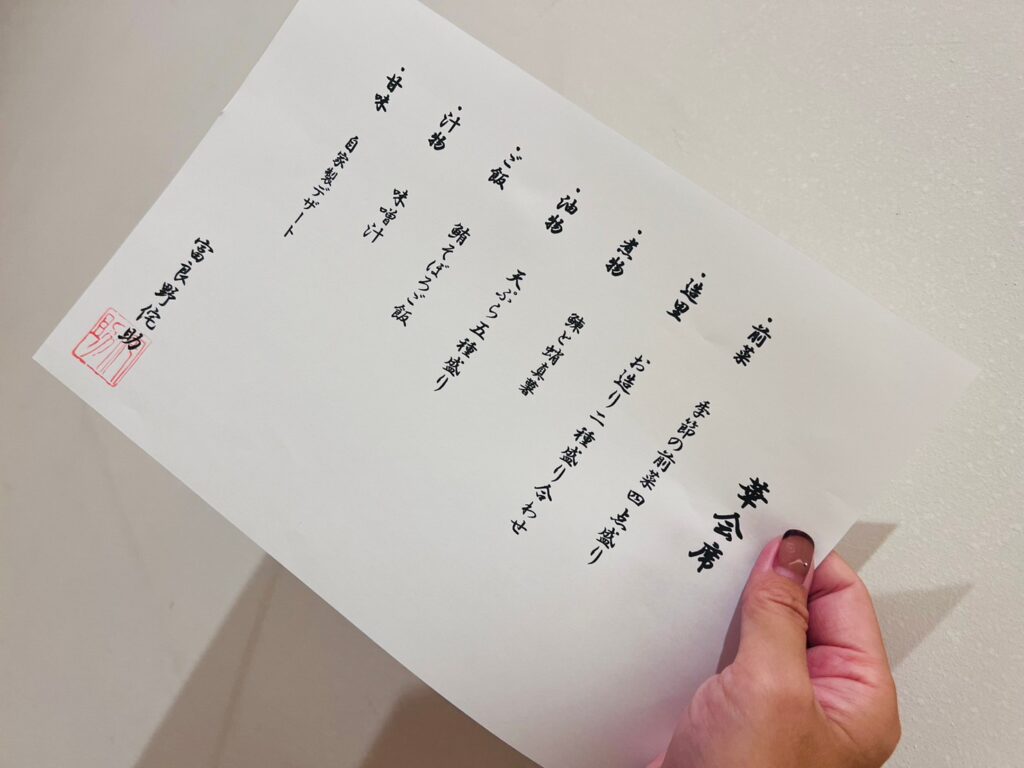 華会席
・前菜　季節の前菜四点盛り
・造里　お造り二種盛り合わせ
・煮物　鰊と蛸真薯
・油物　天ぷら五種盛り
・ご飯　鮪そぼろご飯
・汁物　味噌汁
・甘味　自家製デザート
富良野侘助